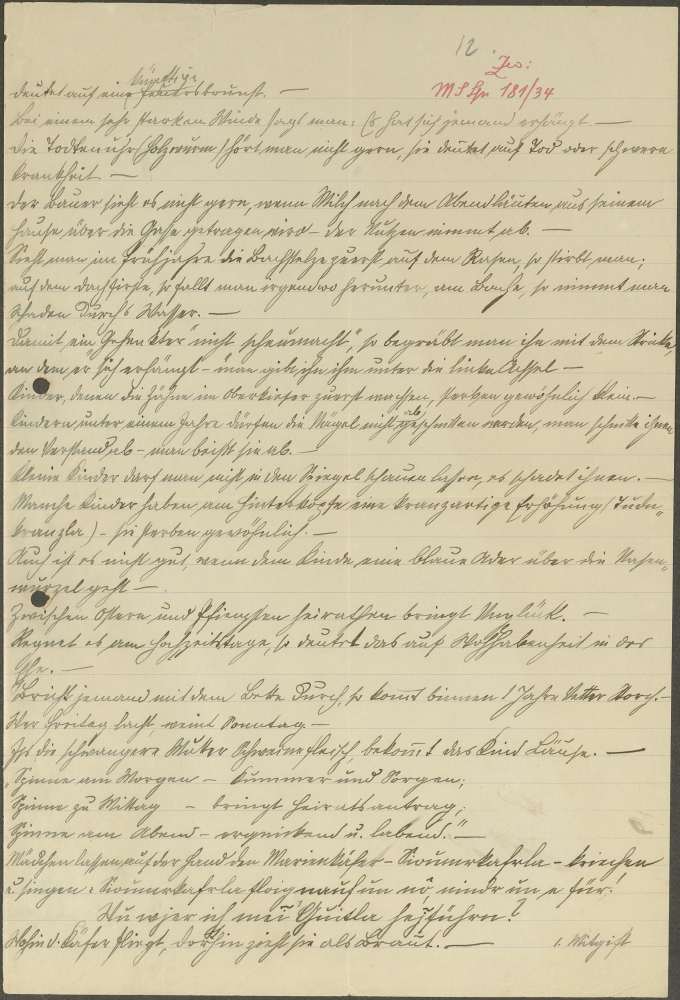 12.
Zes:
künftige
MS Gn 181/34
deutet auf eine Feuersbrunst. —
Bei einem sehr starken Winde sagt man: Es hat sich jemand erhängt —
Die Todtenuhr (Holzwurm) hört man nicht gern, sie deutet auf Tod oder schwere
Krankheit —
Der Bauer sieht es nicht gern, wenn Milch nach dem Abendläuten aus seinem
Hause, über die Gasse getragen wird – der Nutzen nimmt ab. —
Sieht man im Frühjahre die Bachstelze zuerst auf dem Rasen, so stirbt man;
auf dem Dachfirste, so fällt man irgendwo herunter, am Bache, so nimmt man
Schaden durch's Wasser. —
Damit ein „Gehenkter" nicht „scheumacht", so begräbt man ihn mit dem Stricke,
an dem er sich erhängt – man gibt ihn ihm unter die linke Achsel —
Kinder, denen die Zähne im Oberkiefer zuerst wachsen, sterben gewöhnlich klein. —
Kindern unter einem Jahre dürfen die Nägel nicht abgeschnitten werden, man schneide ihnen
den Verstand ab – man beißt sie ab. —
Kleine Kinder darf man nicht in den Spiegel schauen lassen, es schadet ihnen. —
Manche Kinder haben am Hinterkopfe eine kranzartige Erhöhung (Tudn-
kranzla) – sie sterben gewöhnlich. —
Auch ist es nicht gut, wenn dem Kinde eine blaue Ader über die Nasen-
wurzel geht —
Zwischen Ostern und Pfingsten heirathen bringt Unglück. —
Regnet es am Hochzeitstage, so deutet das auf Wohlhabenheit in der
Ehe. —
Bricht jemand mit dem Bette durch, so kommt binnen 1 Jahre Vetter Storch. —
Wer Freitag lacht, weint Sonntag —
Ißt die schwangere Mutter Schweinefleisch, bekommt das Kind Läuse. —
„Spinne am Morgen – Kummer und Sorgen;
Spinne zu Mittag – bringt Heiratsantrag;
Spinne am Abend – erquickend u. labend." —
Mädchen lassen auf der Hand den Marienkäfer – Sioumerkafrla – kriechen
u. singen: Sioumerkafrla floig nauf un nô nindr un e für!
Wu wjer ich mei' Guitla hejführn?
Wohin d. Käfer fliegt, dorthin zieht sie als Braut. —
1. Mitgift